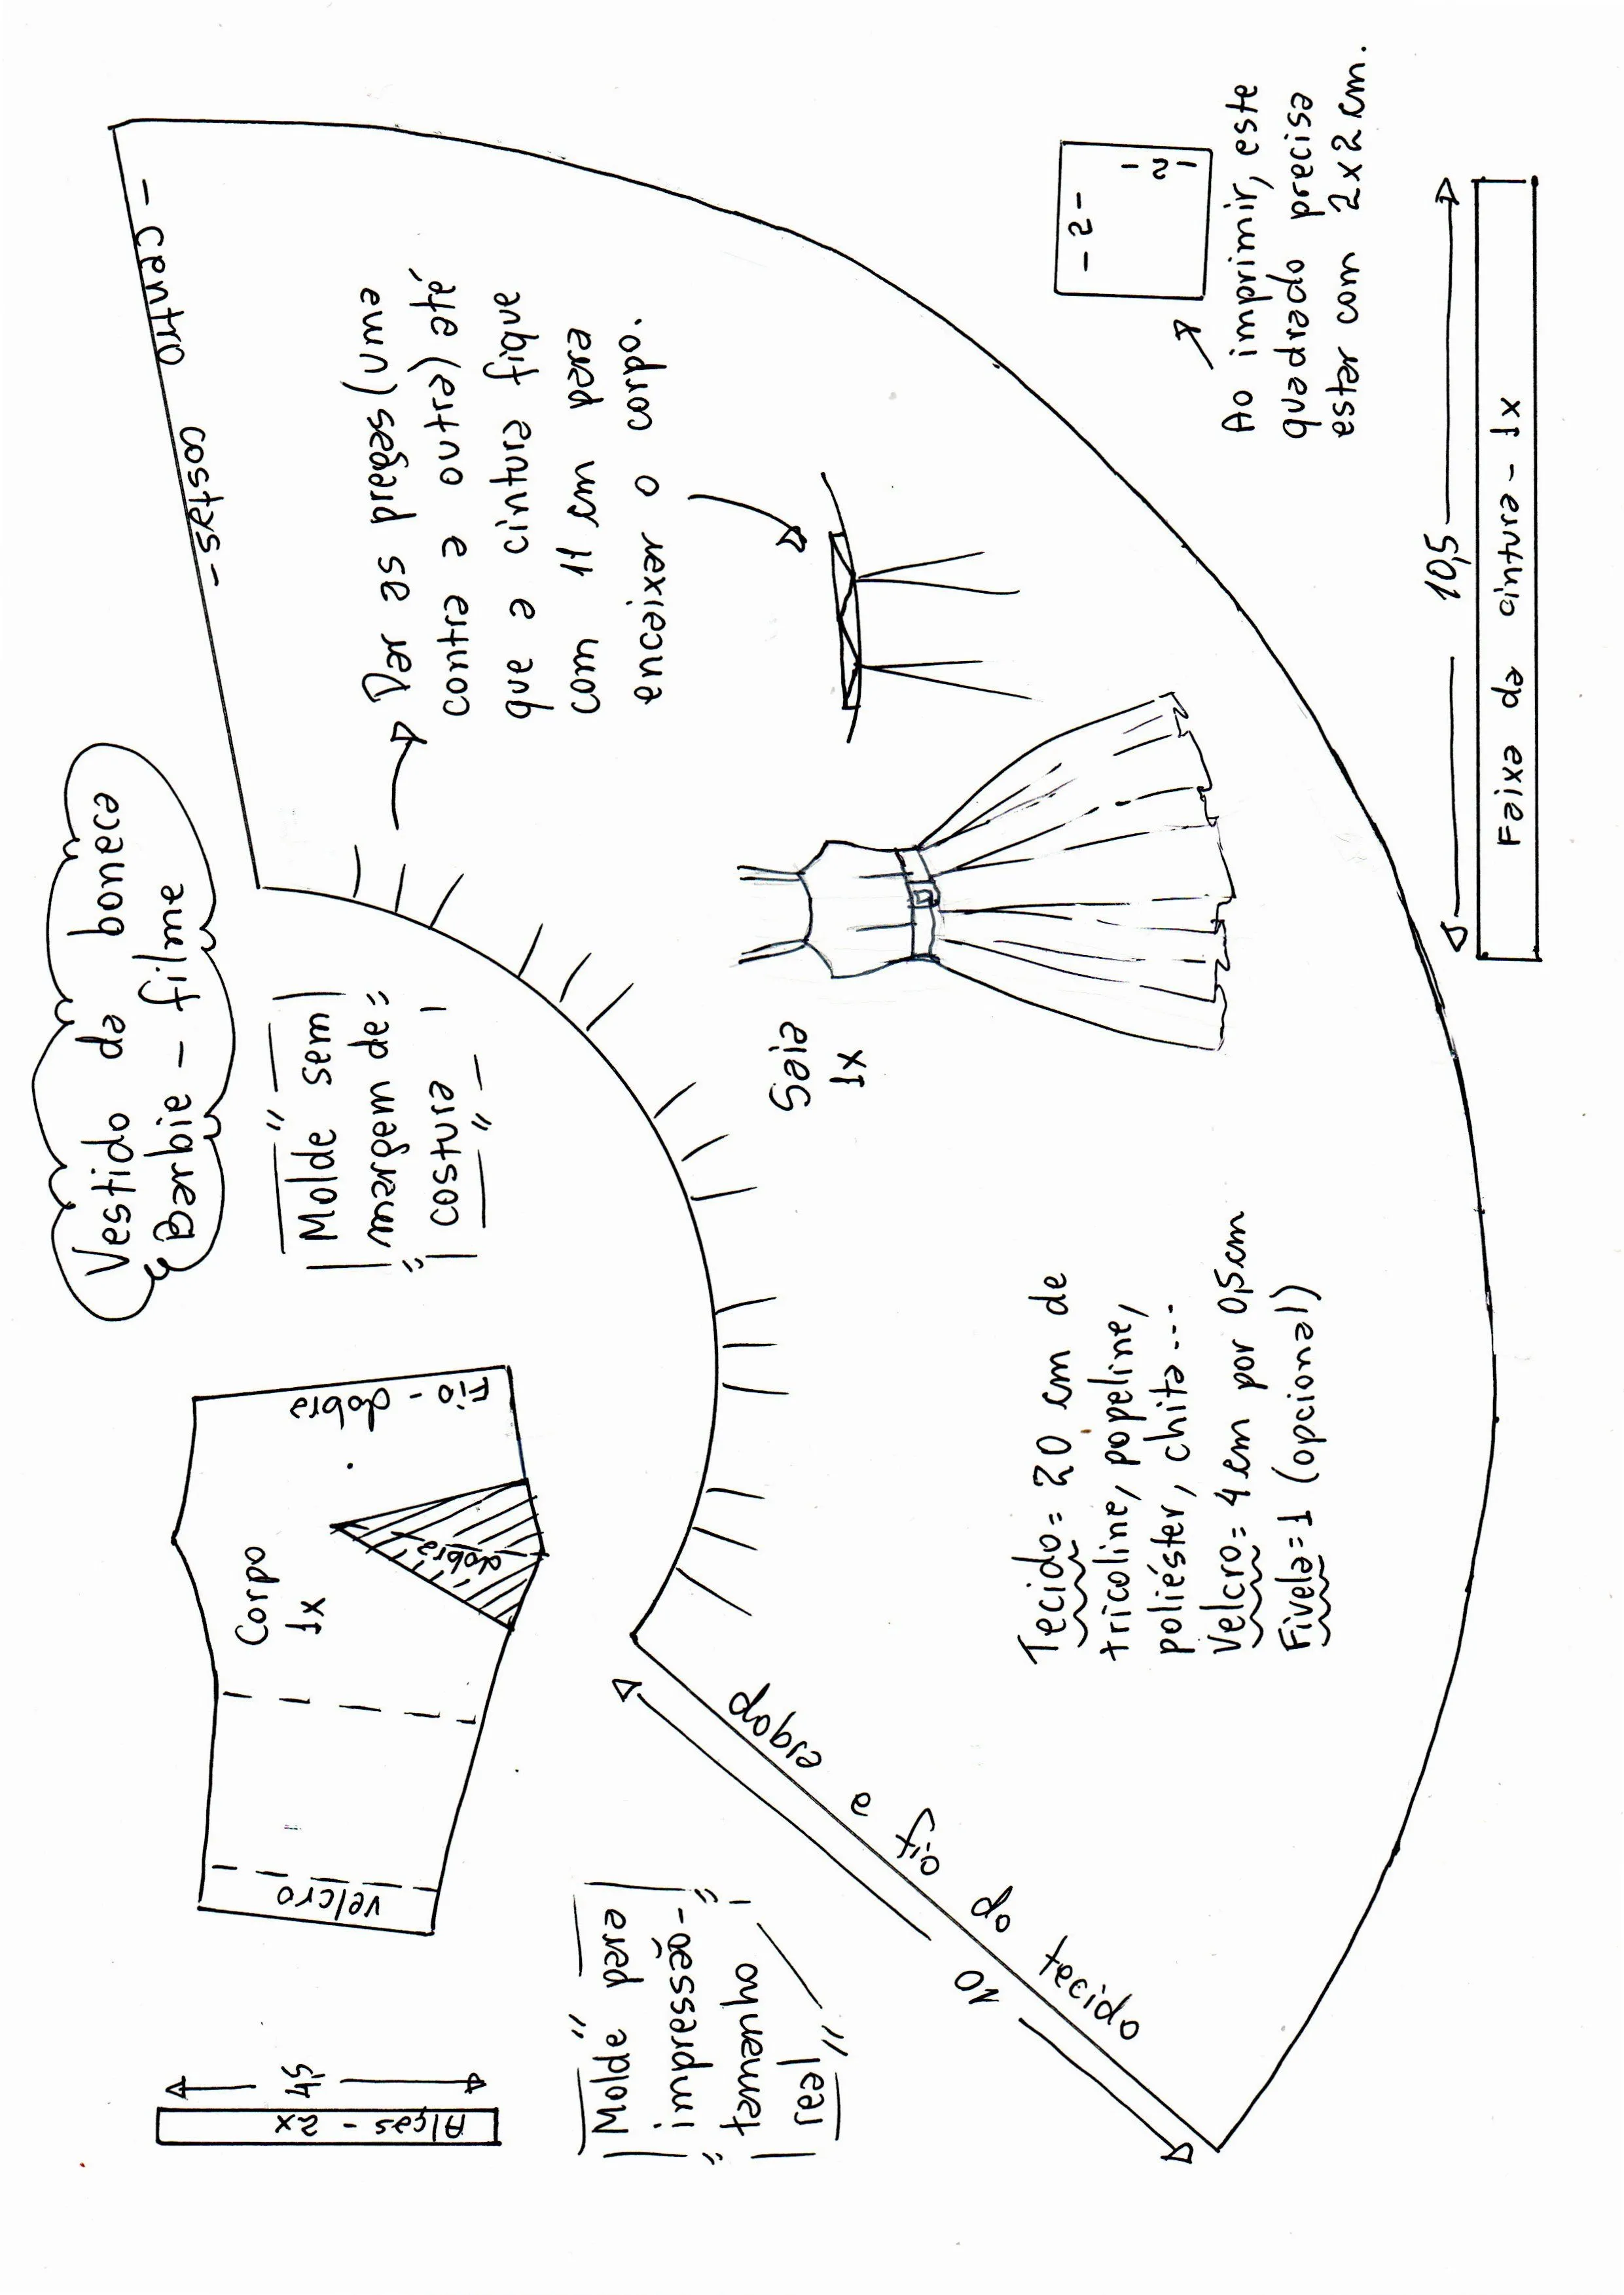 Vestido da boneca
Barbie - filme
"Molde sem
margem de
costura"
- centro costas -
Dar as pregas (uma
contra a outra) até
que a cintura fique
com 11 cm para
encaixar o corpo.
- 2 -
- 2 -
Ao imprimir, este
quadrado precisa
estar com 2x2cm.
10,5
Faixa da cintura - 1x
Saia
1x
Fio - dobra
dobra
Corpo
1x
velcro
Tecido = 20 cm de
tricoline, popeline,
poliéster, chita...
Velcro = 4 cm por 0,5cm
Fivela = 1 (opcional)
dobra e fio do tecido
10
4,5
Alças - 2x
"Molde para
impressão -
tamanho
real"